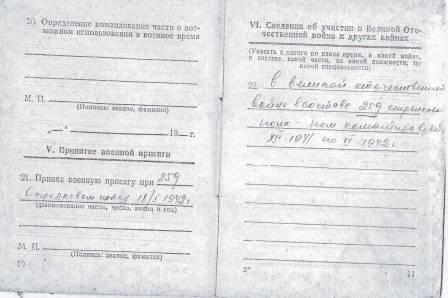 20. Определение командования части о воз-
можном использовании в военное время
М. П.
(Подпись: звание, фамилия)
„ — “ 19 — г.
V. Принятие военной присяги
21. Принял военную присягу при 259
Стрелковом полку 18/I 1942 г.
(наименование части, число, месяц и год)
М. П.
(Подпись: звание, фамилия)
10
VI. Сведения об участии в Великой Оте-
чественной войне и других войнах
(Указать с какого по какое время, в какой войне,
в составе какой части, на какой должности, по
какой специальности)
22. в великой отечественной
войне в составе 259 стрелков
полк - пом командира
XII-1941 по VI 1942 г
2*
11